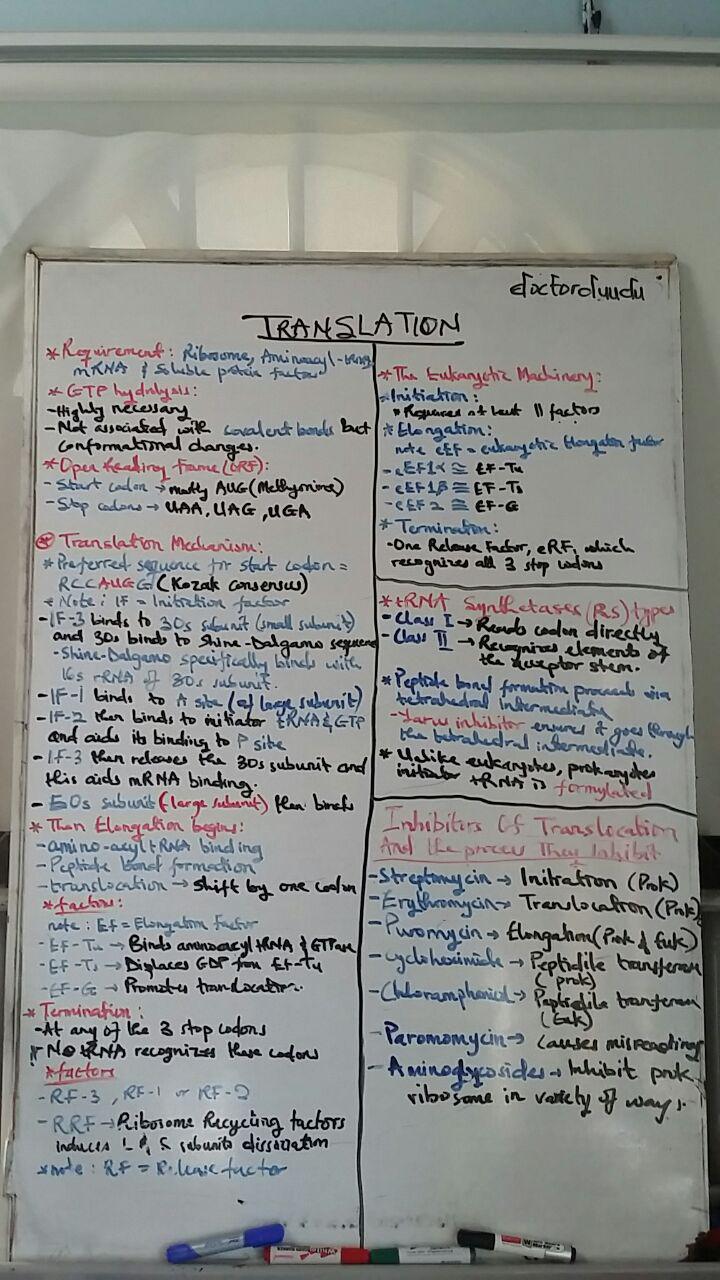 doctordundu
TRANSLATION
* Requirement: Ribosome, Aminoacyl-tRNA,
mRNA & Soluble protein factors
* GTP hydrolysis:
- Highly necessary
- Not associated with covalent bonds but
conformational changes.
* Open Reading Frame (ORF):
- Start codon → mostly AUG (Methyonine)
- Stop codons → UAA, UAG, UGA
* Translation Mechanism:
* Preferred sequence for start codon =
RCCAUGG (Kozak consensus)
* Note: IF = Initiation factor
- IF-3 binds to 30s subunit (small subunit)
and 30s binds to Shine-Dalgarno sequence
- Shine-Dalgarno specifically binds with
16s rRNA of 30s subunit.
- IF-1 binds to A site (of large subunit)
- IF-2 then binds to initiator tRNA & GTP
and aids its binding to P site
- IF-3 then releases the 30s subunit and
this aids mRNA binding.
- 50s subunit (large subunit) then binds
* Then Elongation begins:
- amino-acyl tRNA binding
- Peptide bond formation
- translocation → shift by one codon
* factors:
note: EF = Elongation Factor
- EF-Tu → Binds aminoacyl tRNA & GTPase
- EF-Ts → Displaces GDP from EF-Tu
- EF-G → Promotes translocation.
* Termination:
- At any of the 3 stop codons
* No tRNA recognizes these codons
* factors
- RF-3, RF-1 or RF-2
- RRF → Ribosome Recycling factors
induces L & S subunits dissociation
* note: RF = Release factor
* The Eukaryotic Machinery:
* Initiation:
* Requires at least 11 factors
* Elongation:
note eEF = eukaryotic Elongation factor
- eEF1α ≅ EF-Tu
- eEF1β ≅ EF-Ts
- eEF2 ≅ EF-G
* Termination:
- One Release Factor, eRF, which
recognizes all 3 stop codons
* tRNA Synthetases (RS) types
- Class I → Reads codon directly
- Class II → Recognizes elements of
the acceptor stem.
* Peptide bond formation proceeds via
tetrahedral intermediate
- Yarus inhibitor ensures it goes through
the tetrahedral intermediate.
* Unlike eukaryotes, prokaryotes
initiator tRNA is formylated
Inhibitors Of Translocation
And the process They Inhibit
- Streptomycin → Initiation (Prok)
- Erythromycin → Translocation (Prok)
- Puromycin → Elongation (Prok & Euk)
- Cycloheximide → Peptidile transferase
(prok)
- Chloramphenicol → Peptidile transferase
(Euk)
- Paromomycin → causes misreading
- Aminoglycosides → Inhibit prok.
ribosome in variety of ways.